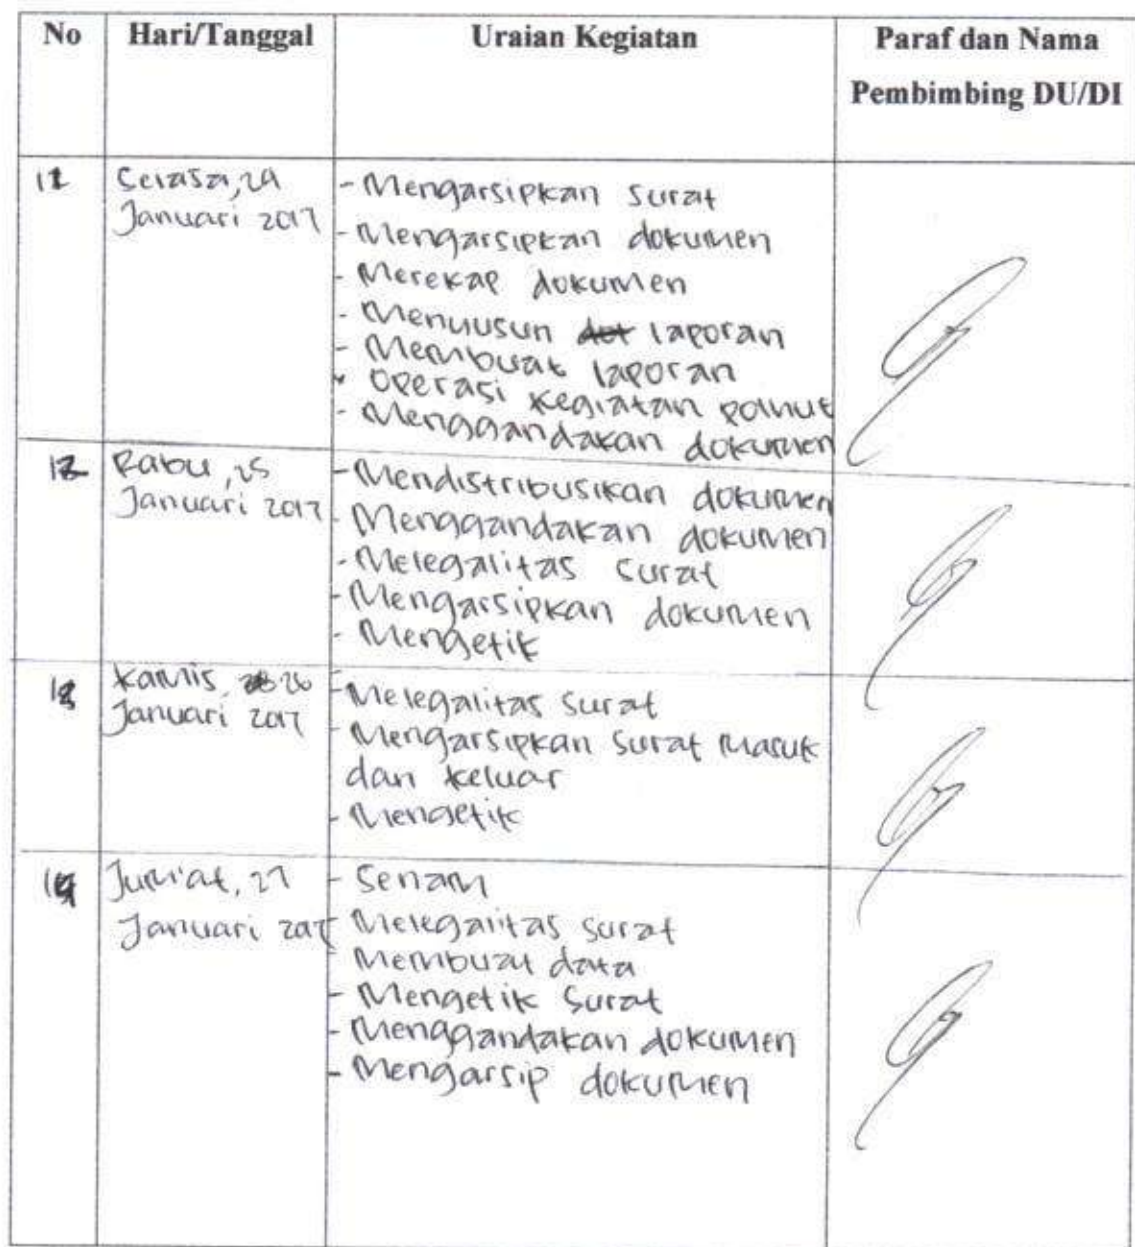 No Hari/Tanggal Uraian Kegiatan Paraf dan Nama
Pembimbing DU/DI
11 Selasa, 24
Januari 2017
- Mengarsipkan surat
- Mengarsipkan dokumen
- Merekap dokumen
- Menyusun laporan
- Membuat laporan
- Operasi kegiatan polhut
- Menggandakan dokumen
12 Rabu, 25
Januari 2017
- Mendistribusikan dokumen
- Menggandakan dokumen
- Melegalitas surat
- Mengarsipkan dokumen
- Mengetik
13 Kamis, 26
Januari 2017
- Melegalitas surat
- Mengarsipkan surat masuk
dan keluar
- Mengetik
14 Jum'at, 27
Januari 2017
- Senam
- Melegalitas surat
- Membuat data
- Mengetik surat
- Menggandakan dokumen
- Mengarsip dokumen